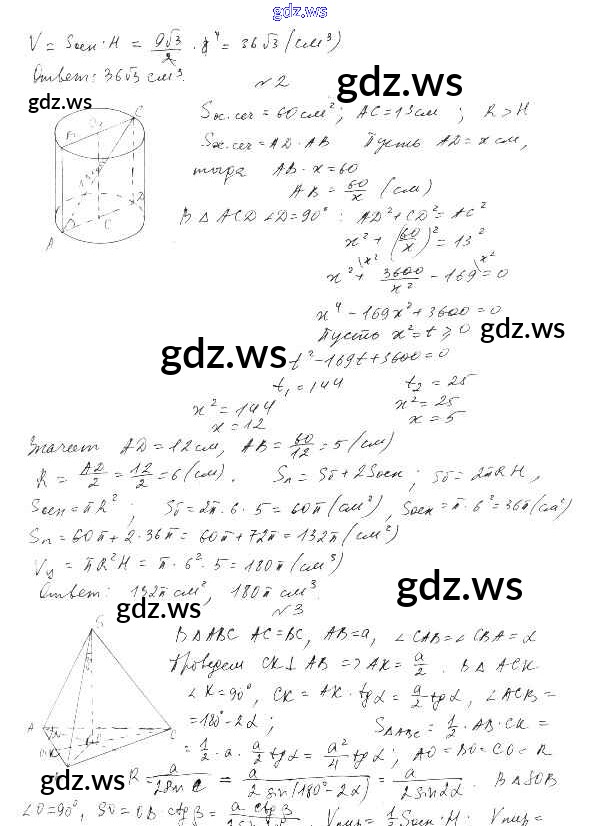 gdz.ws
V = Sосн·H = 9√3/2 · 8⁴ = 36√3 (см³)
Ответ: 36√3 см³.
gdz.ws
gdz.ws
№2
Sос.сеч = 60 см²; AC = 13 см; R > H
Sос.сеч = AD · AB Пусть AD = x см,
тогда AB · x = 60
AB = 60/x (см)
В △ ACD ∠D = 90°: AD² + CD² = AC²
x² + (60/x)² = 13²
x² + 3600/x² - 169 = 0
x⁴ - 169x² + 3600 = 0
Пусть x² = t ≥ 0
gdz.ws
gdz.ws
t² - 169t + 3600 = 0
t₁ = 144 t₂ = 25
x² = 144 x² = 25
x = 12 x = 5
Значит AD = 12 см, AB = 60/12 = 5 (см)
R = AD/2 = 12/2 = 6 (см). Sп = Sб + 2Sосн; Sб = 2πRH,
Sосн = πR²; Sб = 2π · 6 · 5 = 60π (см²), Sосн = π · 6² = 36π (см²)
Sп = 60π + 2 · 36π = 60π + 72π = 132π (см²)
Vц = πR²H = π · 6² · 5 = 180π (см³)
Ответ: 132π см², 180π см³.
gdz.ws
gdz.ws
№3
В △ ABC AC = BC, AB = a, ∠CAB = ∠CBA = α
Проведем CK ⊥ AB => AK = a/2. В △ ACK
∠K = 90°, CK = AK · tgα = a/2 tgα, ∠ACB =
= 180° - 2α; S△ABC = 1/2 · AB · CK =
= 1/2 · a · a/2 tgα = a²/4 tgα; AO = BO = CO = R
gdz.ws
gdz.ws
R = a/2sin C = a/2sin(180° - 2α) = a/2sin2α. В △ SOB
∠O = 90°, SO = OB · ctgβ = a ctgβ
Vпир = 1/3 Sосн · H. Vпир =